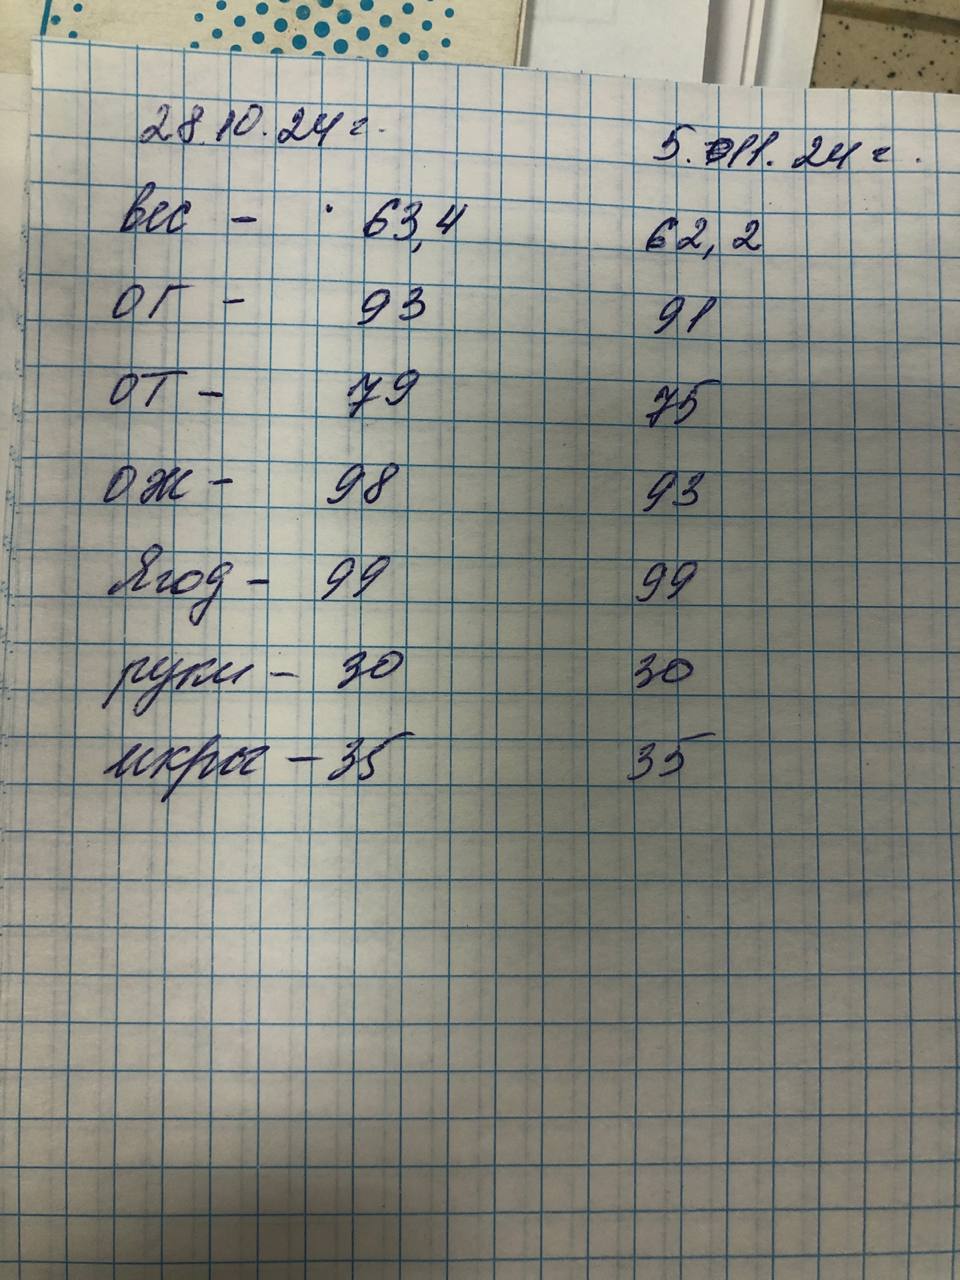 28.10.24г. 5.11.24г.
вес - 63,4 62,2
ОГ - 93 91
ОТ - 79 75
ОЖ - 98 93
Ягод - 99 99
руки - 30 30
икры - 35 35